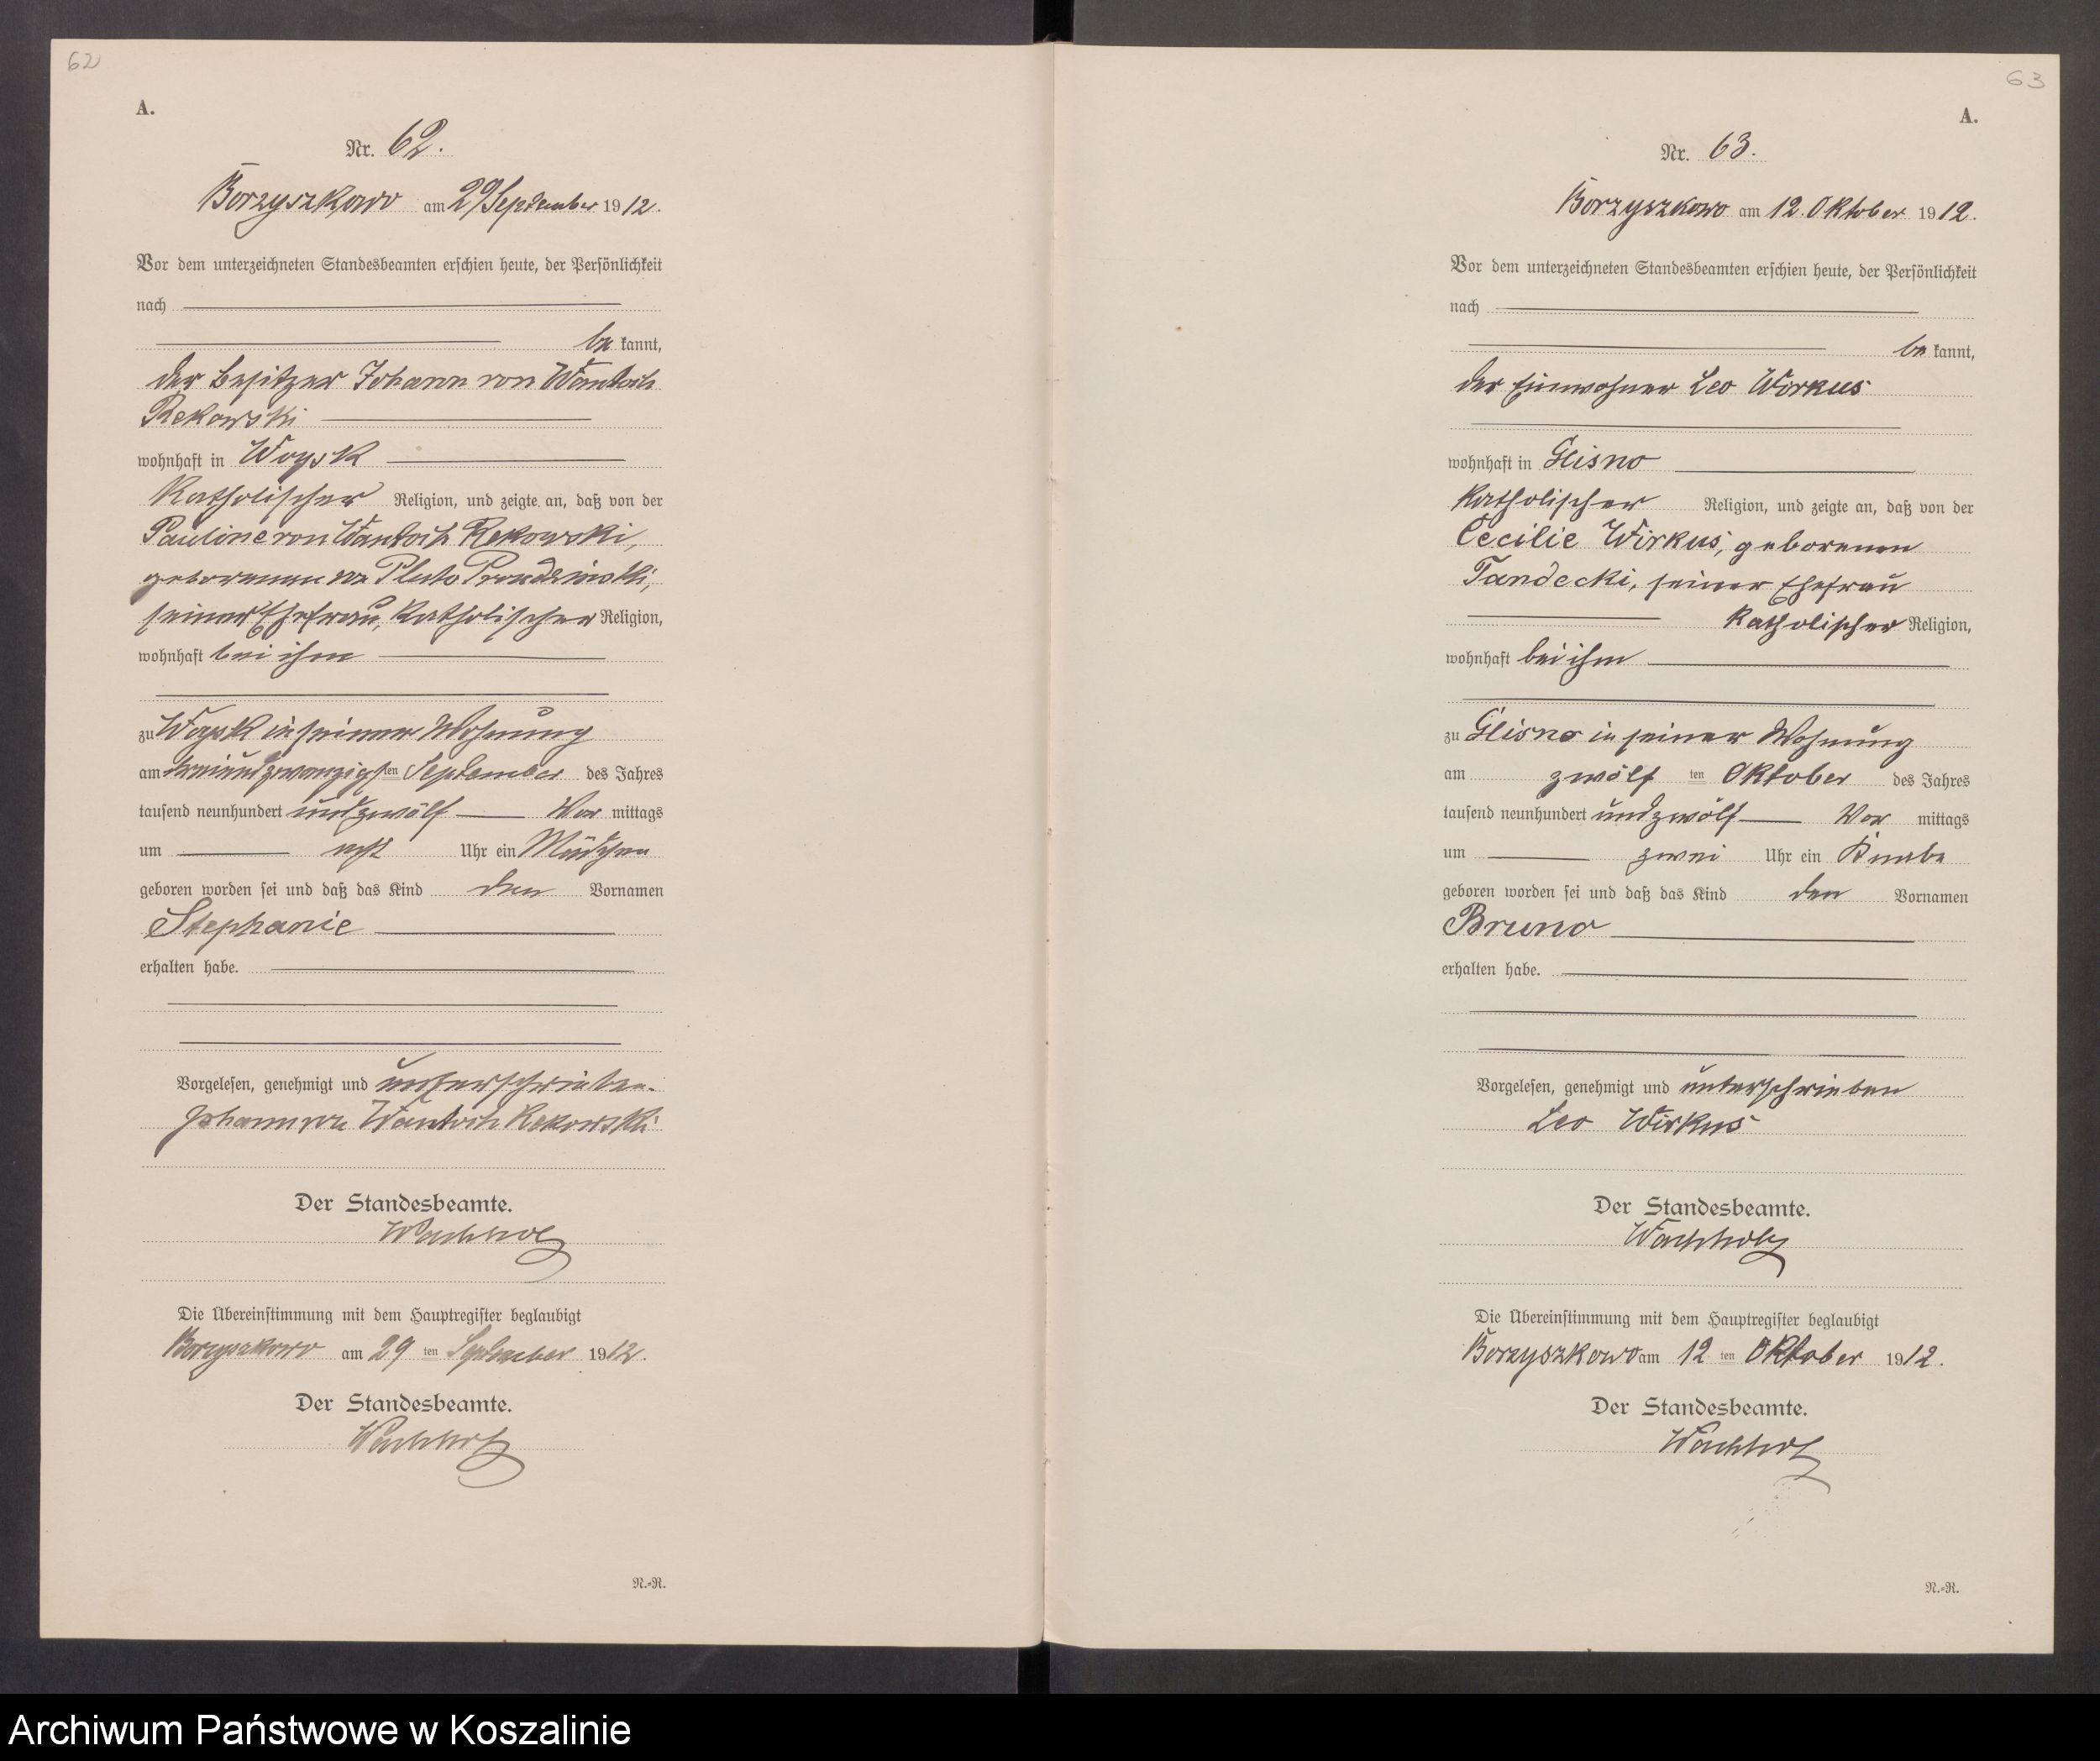 62
A.
Nr. 62.
Borzyszkowo am 29 September 1912.
Vor dem unterzeichneten Standesbeamten erschien heute, der Persönlichkeit
nach
be kannt,
der Besitzer Johann von Wantoch
Rekowski
wohnhaft in Woysk
Katholischer Religion, und zeigte an, daß von der
Pauline von Wantoch Rekowski,
geborenen von Pluto Prondzinski,
seiner Ehefrau, Katholischer Religion,
wohnhaft bei ihm
zu Woysk in seiner Wohnung
am dreiundzwanzigsten September des Jahres
tausend neunhundert und zwölf Vor mittags
um acht Uhr ein Mädchen
geboren worden sei und daß das Kind den Vornamen
Stephanie
erhalten habe.
Vorgelesen, genehmigt und unterschrieben.
Johann von Wantoch Rekowski
Der Standesbeamte.
Wachholz
Die Übereinstimmung mit dem Hauptregister beglaubigt
Borzyszkowo am 29 ten September 1912.
Der Standesbeamte.
Wachholz
N.-R.
63
A.
Nr. 63.
Borzyszkowo am 12. Oktober 1912.
Vor dem unterzeichneten Standesbeamten erschien heute, der Persönlichkeit
nach
be kannt,
der Einwohner Leo Wirkus
wohnhaft in Glisno
Katholischer Religion, und zeigte an, daß von der
Cecilie Wirkus, geborenen
Tandecki, seiner Ehefrau
Katholischer Religion,
wohnhaft bei ihm
zu Glisno in seiner Wohnung
am zwölf ten Oktober des Jahres
tausend neunhundert und zwölf Vor mittags
um zwei Uhr ein Knabe
geboren worden sei und daß das Kind den Vornamen
Bruno
erhalten habe.
Vorgelesen, genehmigt und unterschrieben
Leo Wirkus
Der Standesbeamte.
Wachholz
Die Übereinstimmung mit dem Hauptregister beglaubigt
Borzyszkowo am 12 ten Oktober 1912.
Der Standesbeamte.
Wachholz
N.-R.
Archiwum Państwowe w Koszalinie